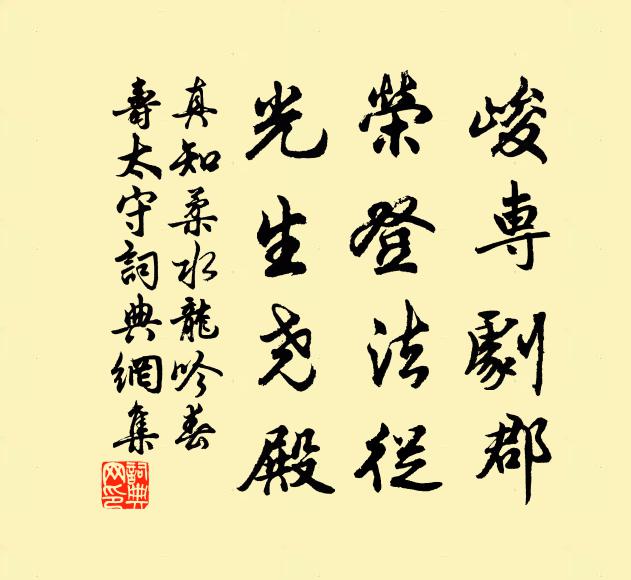 峻専劇郡
榮登法從
光生尧殿
真知柔水龍吟春
壽太守詞典網集
詞典网印